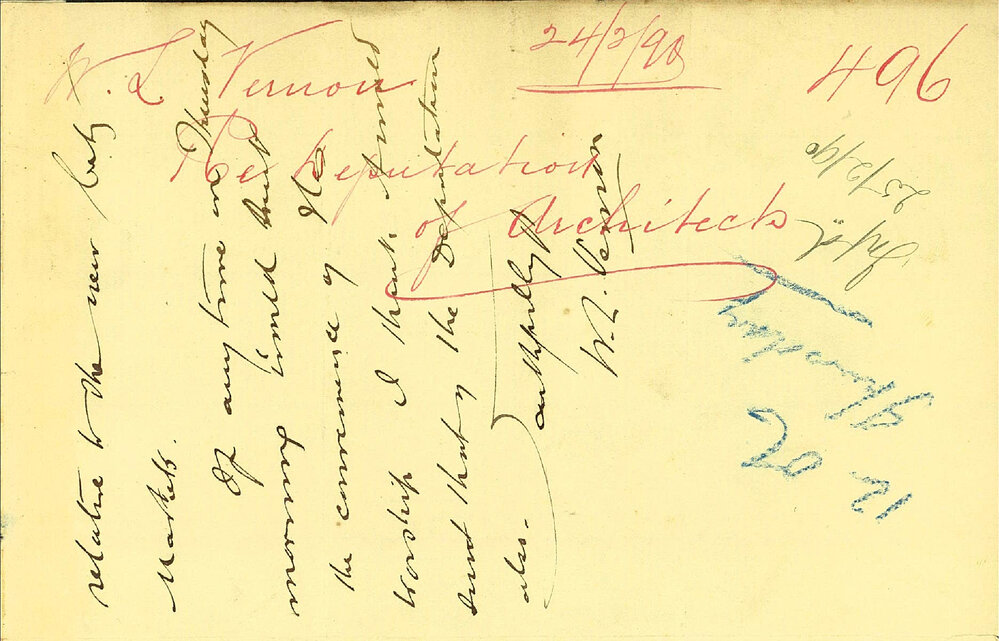 W. L. Vernon
24/2/90
496
Re Deputation
of Architects
relative to the new City
Markets.
If any time on Thursday
morning would suit
the convenience of His
Worship I think it would
suit that of the Deputation
also.
Faithfully
W. L. Vernon
25/2/90
12 O'C
Thursday